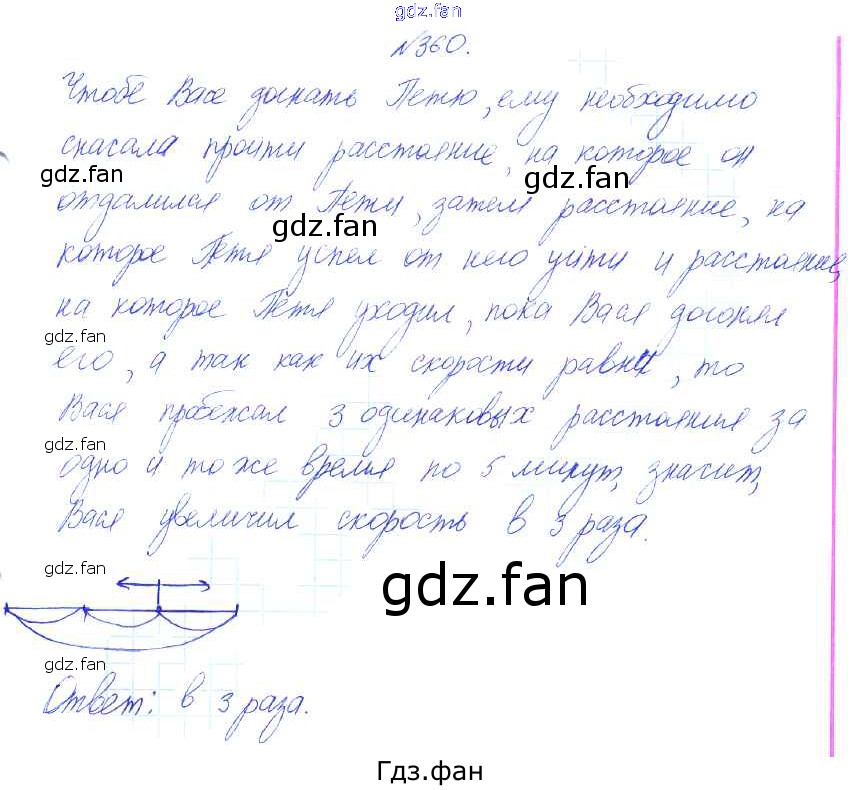 gdz.fan
№360.
Чтобе Васе догнать Петю, ему необходимо
снасала пройти расстояние, на которое он
gdz.fan
gdz.fan
отдалился от Пети, затем расстояние, на
gdz.fan
которое Петя успел от него уйти и расстояние,
на которое Петя уходил, пока Вася догонял
gdz.fan
его, а так как их скорости равны, то
Вася пробежал 3 одинаковых расстояния за
gdz.fan
одно и то же время по 5 минут, значит,
Вася увеличил скорость в 3 раза.
gdz.fan
gdz.fan
gdz.fan
Ответ: в 3 раза.
Гдз.фан